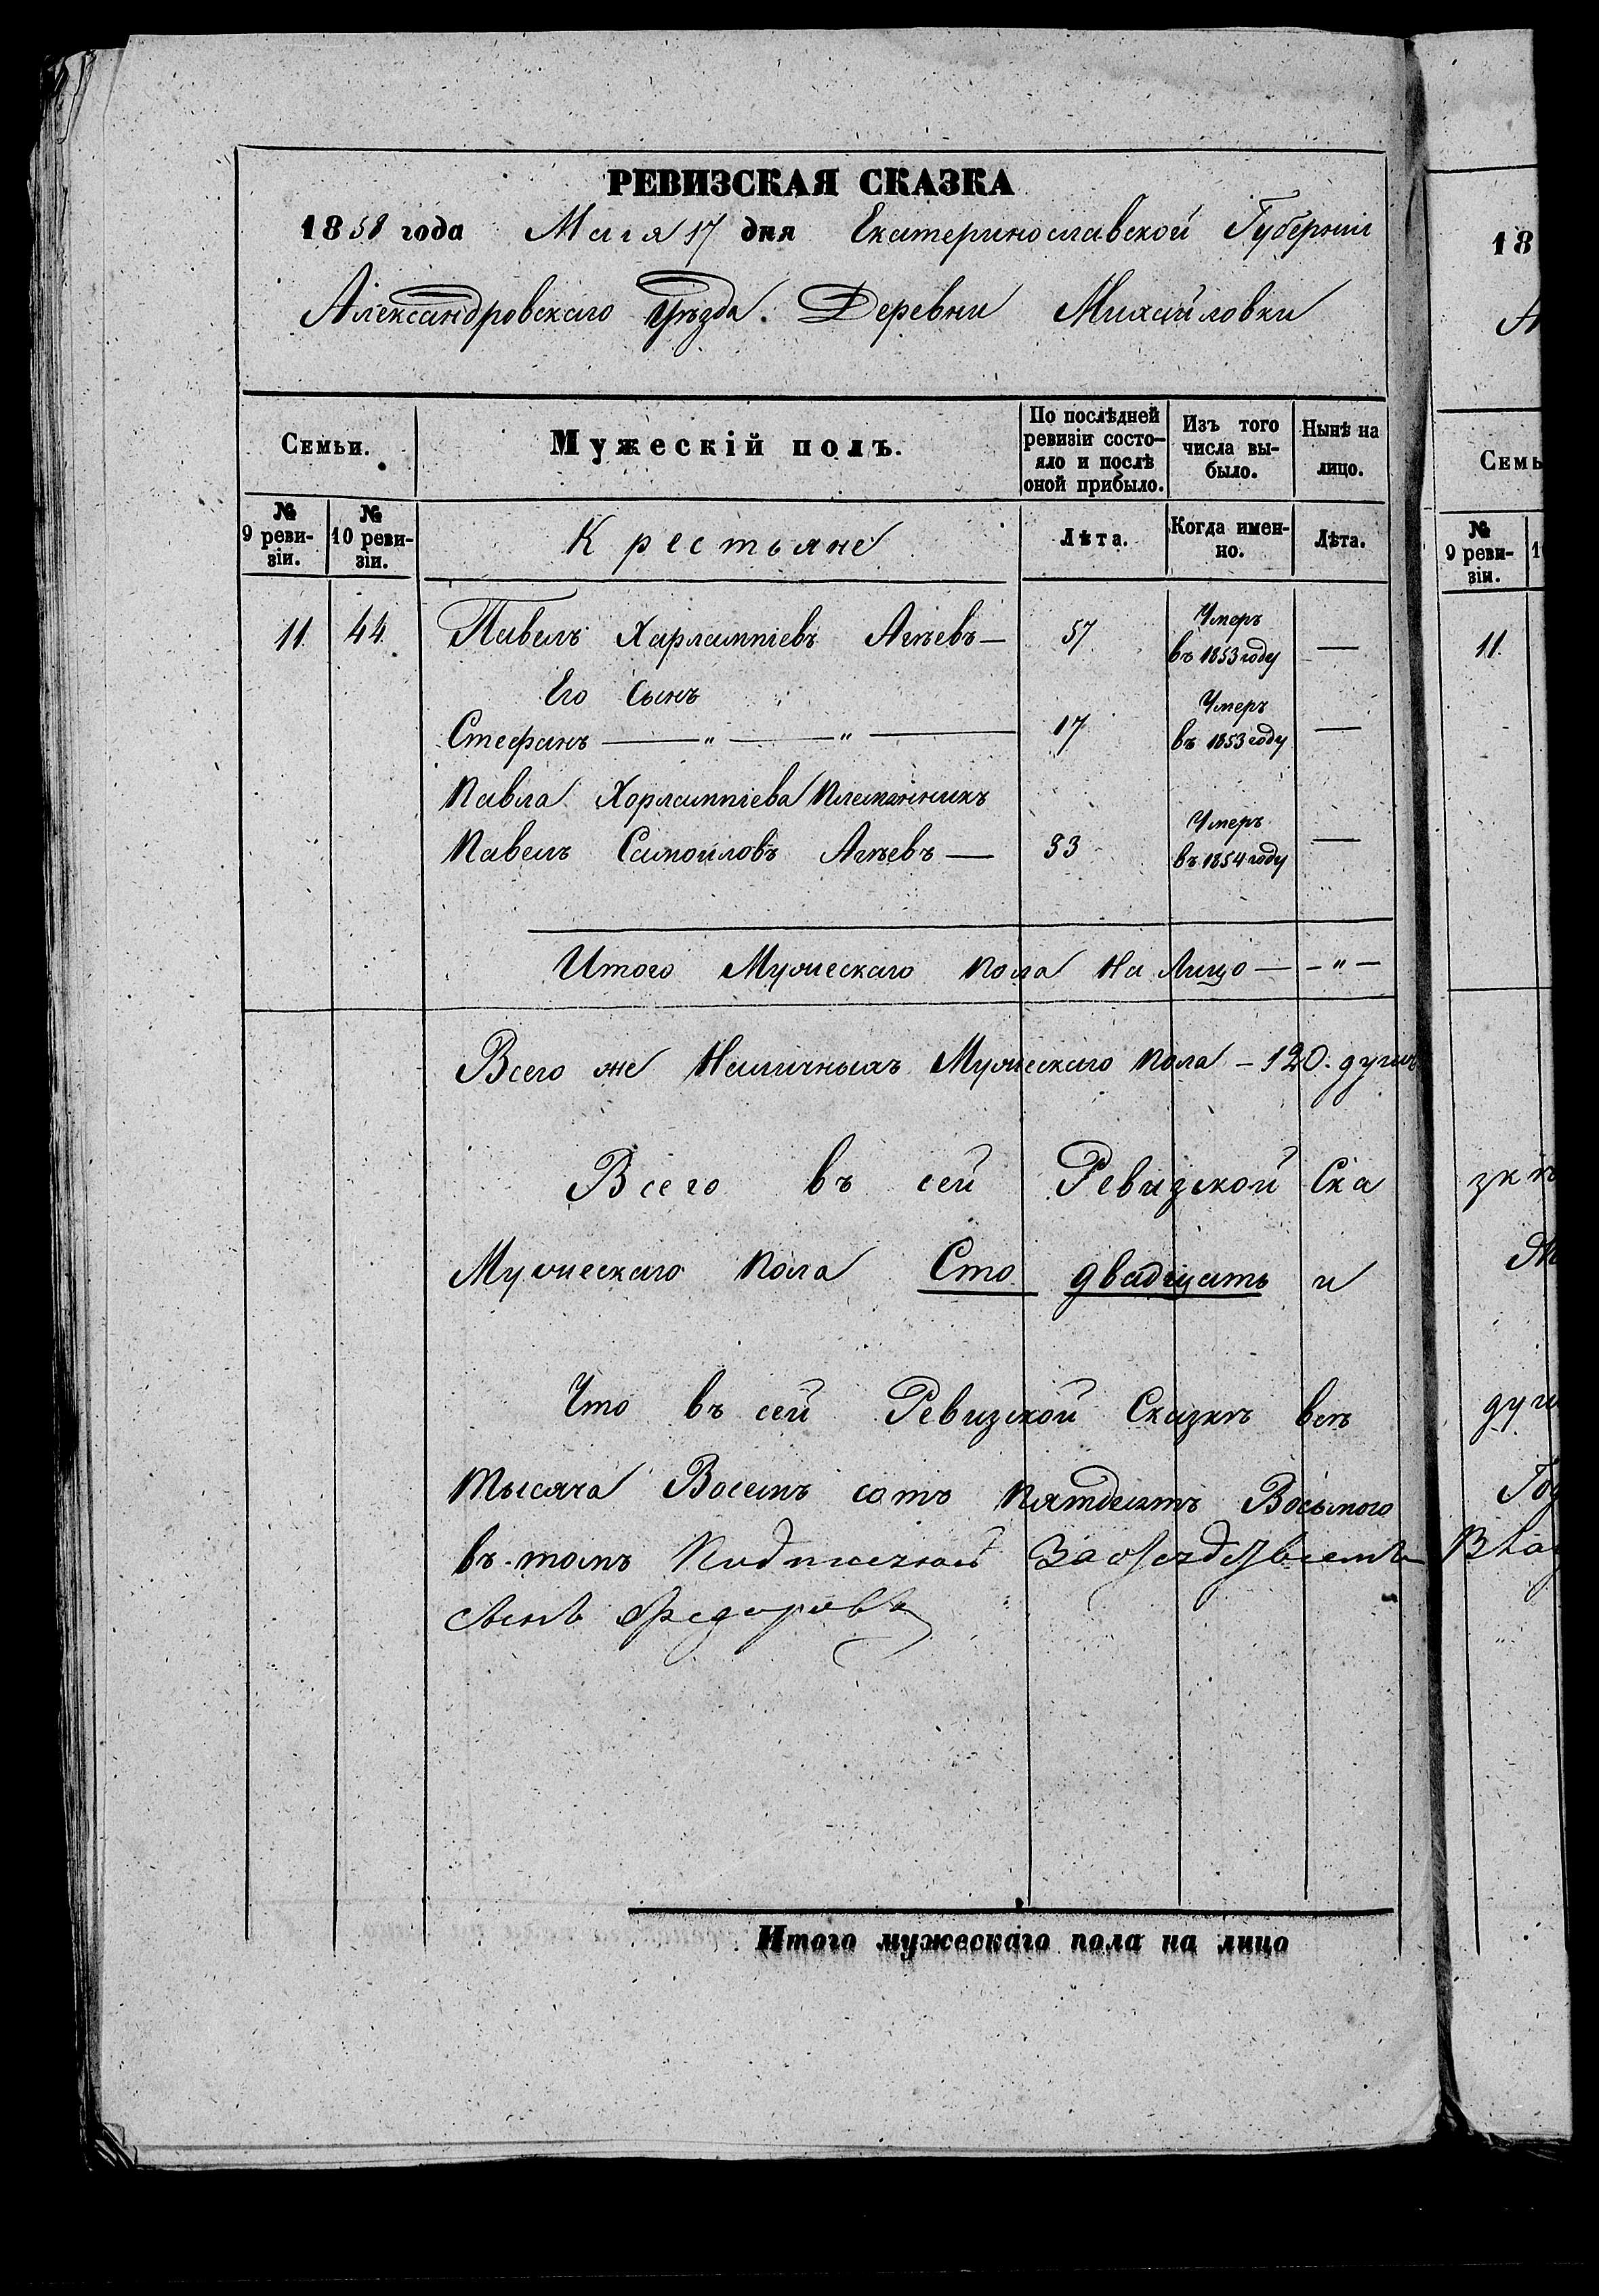 РЕВИЗСКАЯ СКАЗКА
1858 года Мая 17 дня Екатеринославской Губерніи
Александровскаго Уѣзда. Деревни Михайловки
Семьи.
Мужескій полъ.
По послѣдней ревизіи состо-
яло и послѣ
оной прибыло.
Изъ того
числа вы-
было.
Нынѣ на
лицо.
№
9 реви-
зіи.
№
10 реви-
зіи.
Крестьяне
Лѣта.
Когда имен-
но.
Лѣта.
11. 44. Павелъ Харлампіевъ Агѣевъ — 57 Умеръ
въ 1853 году —
Его Сынъ
Стефанъ — " — " — 17 Умеръ
въ 1853 году —
Павла Хорлампіева Племянникъ
Павелъ Самойловъ Агѣевъ — 33 Умеръ
въ 1854 году —
Итого Мужескаго пола На Лицо — - " -
Всего же Наличныхъ Мужескаго пола - 120. душъ
Всего въ сей Ревизской Ска
Мужескаго пола Сто двадцать и
Что въ сей Ревизской Сказкѣ всѣ
тысяча Восемъ сотъ пятдесятъ Восьмого
въ томъ
сынъ Федоровъ
Итого мужескаго пола на лицо
18
Семь
№
9 реви-
зіи.
11.
зкѣ